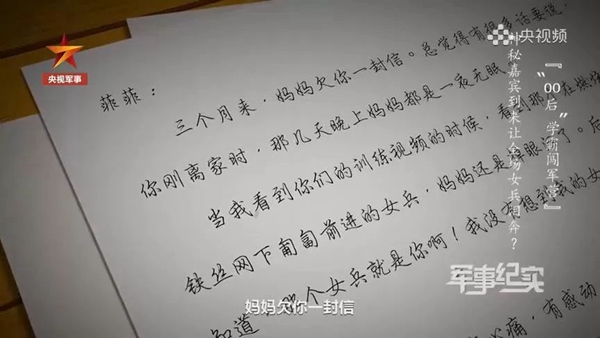 央视军事
央视频
『"00后"学霸闯军营』
秘嘉宾到来让全场女兵泪奔？
菲菲：
三个月来，妈妈欠你一封信。总觉得有很多话要说，
你刚离家时，那几天晚上妈妈都是一夜无眠
当我看到你们的训练视频的时候，看到那 在燃烧
铁丝网下匍匐前进的女兵，妈妈还是 眼 了。后
知道 那个女兵就是你啊！我没有想到我的女
痛，有感动
军事纪实
妈妈欠你一封信